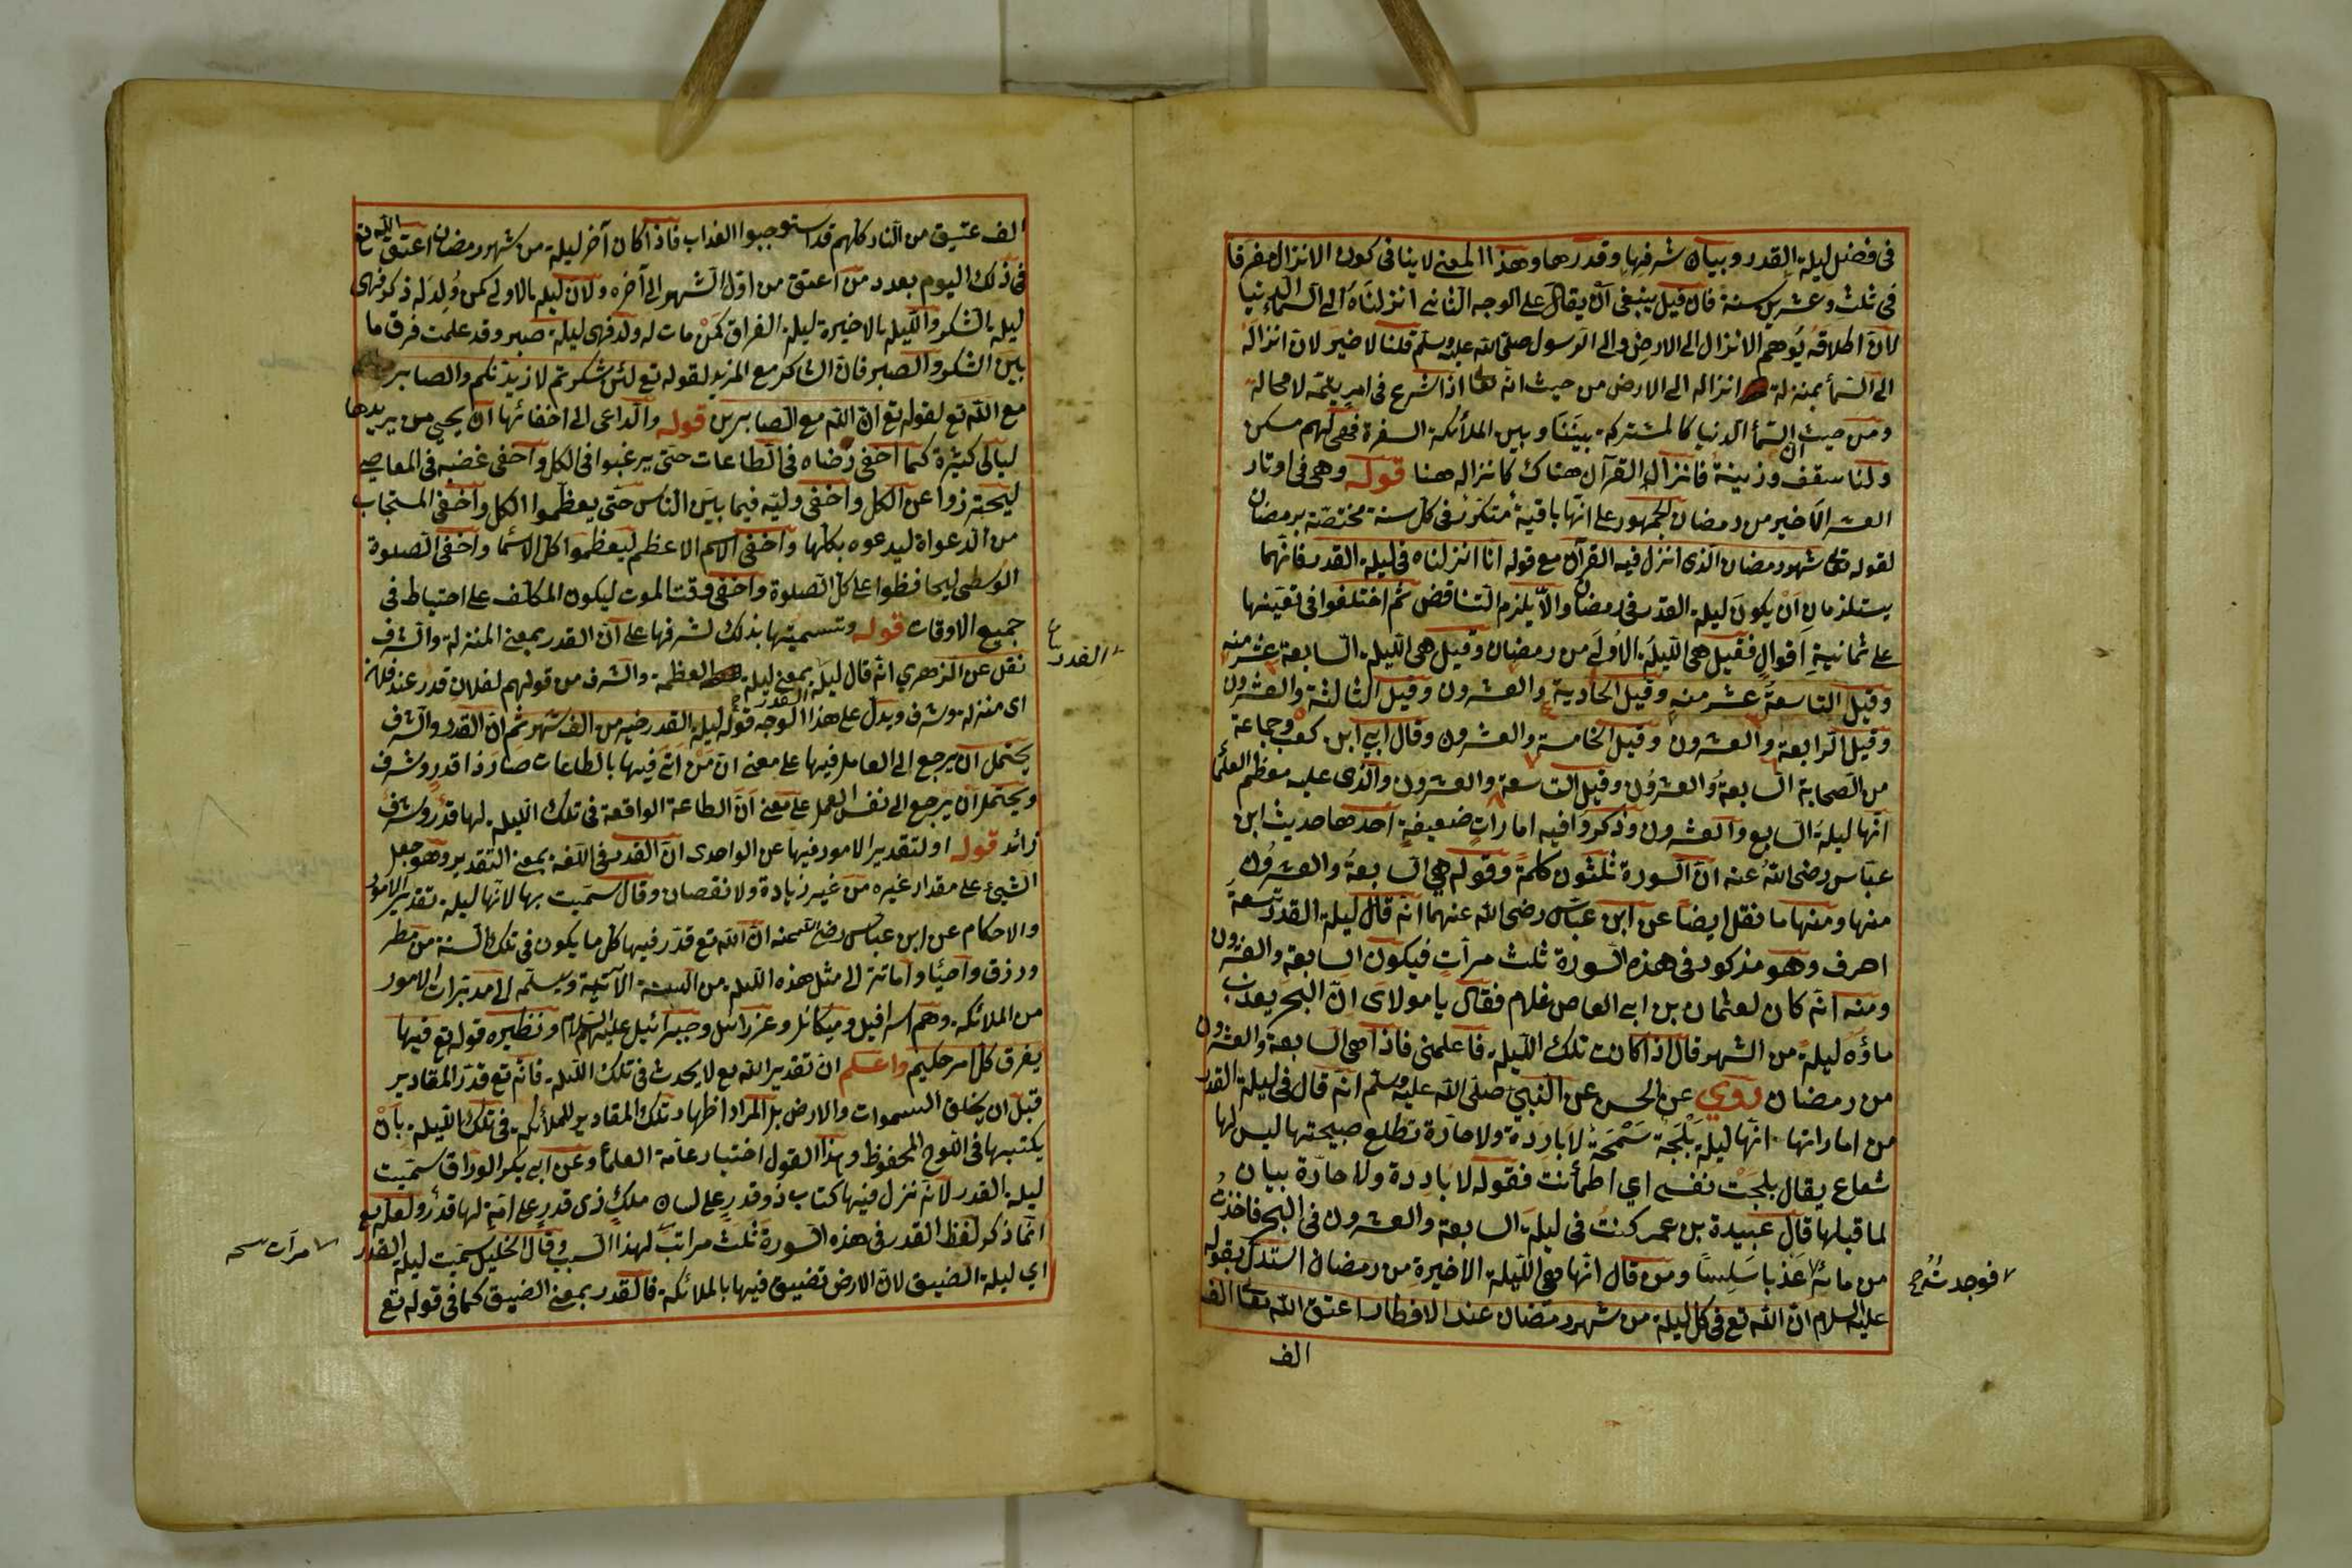 فى فضل ليلة القدر وبيان شرفها وقدرها وهذا المعنى لا ينافى كون الانزال مفرقا
فى ثلث وعشرين سنة فان قيل ينبغى ان يقال على الوجه الثانى انزلناه الى السماء الدنيا
لان اطلاقه يوهم الانزال الى الارض والى الرسول صلى الله عليه وسلم قلنا لا ضير لان انزاله
الى السمأ بمنزلة انزاله الى الارض من حيث انه تعا اذا شرع فى امر يتمه لا محالة
ومن حيث ان السمأ الدنيا كالمشتركة بيننا وبين الملأئكة السفرة فهى لهم مسكن
ولنا سقف وزينة فانزال القرآن هناك كانزاله هنا قوله وهى فى اوتار
العشر الاخير من رمضان الجمهور على انها باقية متكررة فى كل سنة مختصة برمضان
لقوله تعا شهر رمضان الذى انزل فيه القرآن مع قوله انا انزلناه فى ليلة القدر فانهما
يستلزمان ان يكون ليلة القدر فى رمضان والا يلزم التناقض ثم اختلفوا فى تعيينها
على ثمانية اقوال فقيل هى الليلة الاولى من رمضان وقيل هى الليلة السابعة عشر منه
وقيل التاسعة عشر منه وقيل الحادية والعشرون وقيل الثالثة والعشرون
وقيل الرابعة والعشرون وقيل الخامسة والعشرون وقال ابى ابن كعب وجماعة
من الصحابة السابعة والعشرون وقيل التاسعة والعشرون والذى عليه معظم العلمأ
انها ليلة السابع والعشرون وذكروا فيه امارات ضعيفة احدها حديث ابن
عباس رضى الله عنه ان السورة ثلثون كلمة وقوله هى السابعة والعشرون
منها ومنها ما نقل ايضا عن ابن عباس رضى الله عنهما انه قال ليلة القدر تسعة
احرف وهو مذكور فى هذه السورة ثلث مرات فيكون السابعة والعشرون
ومنه انه كان لعثمان بن ابى العاص غلام فقال يا مولاى ان البحر يعذب
ماؤه ليلة من الشهر قال اذا كانت تلك الليلة فاعلمنى فاذا هى السابعة والعشرون
من رمضان روي عن الحسن عن النبى صلى الله عليه وسلم انه قال فى ليلة القدر
من اماراتها انها ليلة بلجة سمحة لا باردة ولا حارة تطلع صبيحتها ليس لها
شعاع يقال بلجت نفسى اي اطمأنت فقوله لا باردة ولا حارة بيان
لما قبلها قال عبيدة بن عمر كنت فى ليلة السابعة والعشرون فى البحر فاخذت
من مائه عذبا سلسا ومن قال انها هى الليلة الاخيرة من رمضان استدل بقوله
فوجدته صح
عليه السلام ان الله تع فى كل ليلة من شهر رمضان عند الافطار اعتق الله تعا الف
الف
الف عتيق من النار كلهم قد استوجبوا العذاب فاذا كان آخر ليلة من شهر رمضان اعتق الله تع
فى ذلك اليوم بعدد من اعتق من اول الشهر الى آخره ولان ليلة الاولى كمن ولد له ذكر فهى
ليلة الشكر والليلة الاخيرة ليلة الفراق كمن مات له ولد فهى ليلة صبر وقد علمت فرق ما
بين الشكر والصبر فان الشاكر مع المزيد لقوله تع لئن شكرتم لازيدنكم والصابر
مع الله تع لقوله تع ان الله مع الصابرين قوله والداعى الى اخفائها ان يحيى من يريدها
ليالى كثيرة كما اخفى رضاه فى الطاعات حتى يرغبوا فى الكل واخفى غضبه فى المعاصى
ليحترزوا عن الكل واخفى وليه فيما بين الناس حتى يعظموا الكل واخفى المستجاب
من الدعواة ليدعوه بكلها واخفى الاسم الاعظم ليعظموا كل الاسما واخفى الصلوة
الوسطى ليحافظوا على كل الصلوة واخفى وقت الموت ليكون المكلف على احتياط فى
جميع الاوقات قوله وتسميتها بذلك لشرفها على ان القدر بمعنى المنزلة والشرف
القدر
نقل عن الزهري انه قال ليلة القدر بمعنى ليلة العظمة والشرف من قولهم لفلان قدر عند فلان
اى منزلة وشرف ويدل على هذا الوجه قوله ليلة القدر خير من الف شهر ثم ان القدر والشرف
يحتمل ان يرجع الى العامل فيها على معنى ان من اتى فيها بالطاعات صار ذا قدر وشرف
ويحتمل ان يرجع الى نفس العمل على معنى ان الطاعة الواقعة فى تلك الليلة لها قدر وشرف
زائد قوله او لتقدير الامور فيها عن الواحدى ان القدر فى اللغة بمعنى التقدير وهو جعل
الشيئ على مقدار غيره من غير زيادة ولا نقصان وقال سميت بها لانها ليلة تقدير الامور
والاحكام عن ابن عباس رضى الله عنه ان الله تع قدر فيها كل ما يكون فى تلك السنة من مطر
ورزق واحيأ واماتة الى مثل هذه الليلة من السنة الآتية ويسلمه الى مدبرات الامور
من الملائكة وهم اسرافيل وميكائل وعزرائل وجبرائيل عليهم السلام ونظيره قوله تع فيها
يفرق كل امر حكيم واعلم ان تقدير الله تع لا يحدث فى تلك الليلة فانه تع قدر المقادير
قبل ان يخلق السموات والارض بل المراد اظهار تلك المقادير للملأئكة فى تلك الليلة بان
يكتبها فى اللوح المحفوظ وهذا القول اختيار عامة العلمأ وعن ابى بكر الوراق سميت
ليلة القدر لانه نزل فيها كتاب ذو قدر على لسان ملك ذى قدر على امة لها قدر ولعله تع
انما ذكر لفظ القدر فى هذه السورة ثلث مراتب لهذا السبب وقال الخليل سميت ليلة القدر
مرات نسخه
اي ليلة الضيق لان الارض تضيق فيها بالملائكة فالقدر بمعنى الضيق كما فى قوله تع